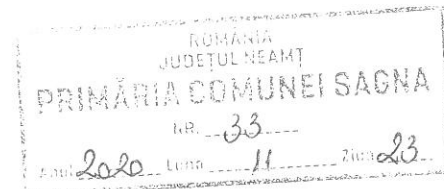 ROMÂNIA
JUDEȚUL NEAMȚ
PRIMĂRIA COMUNEI SAGNA
NR. 33
Anul 2020 Luna 11 Ziua 23